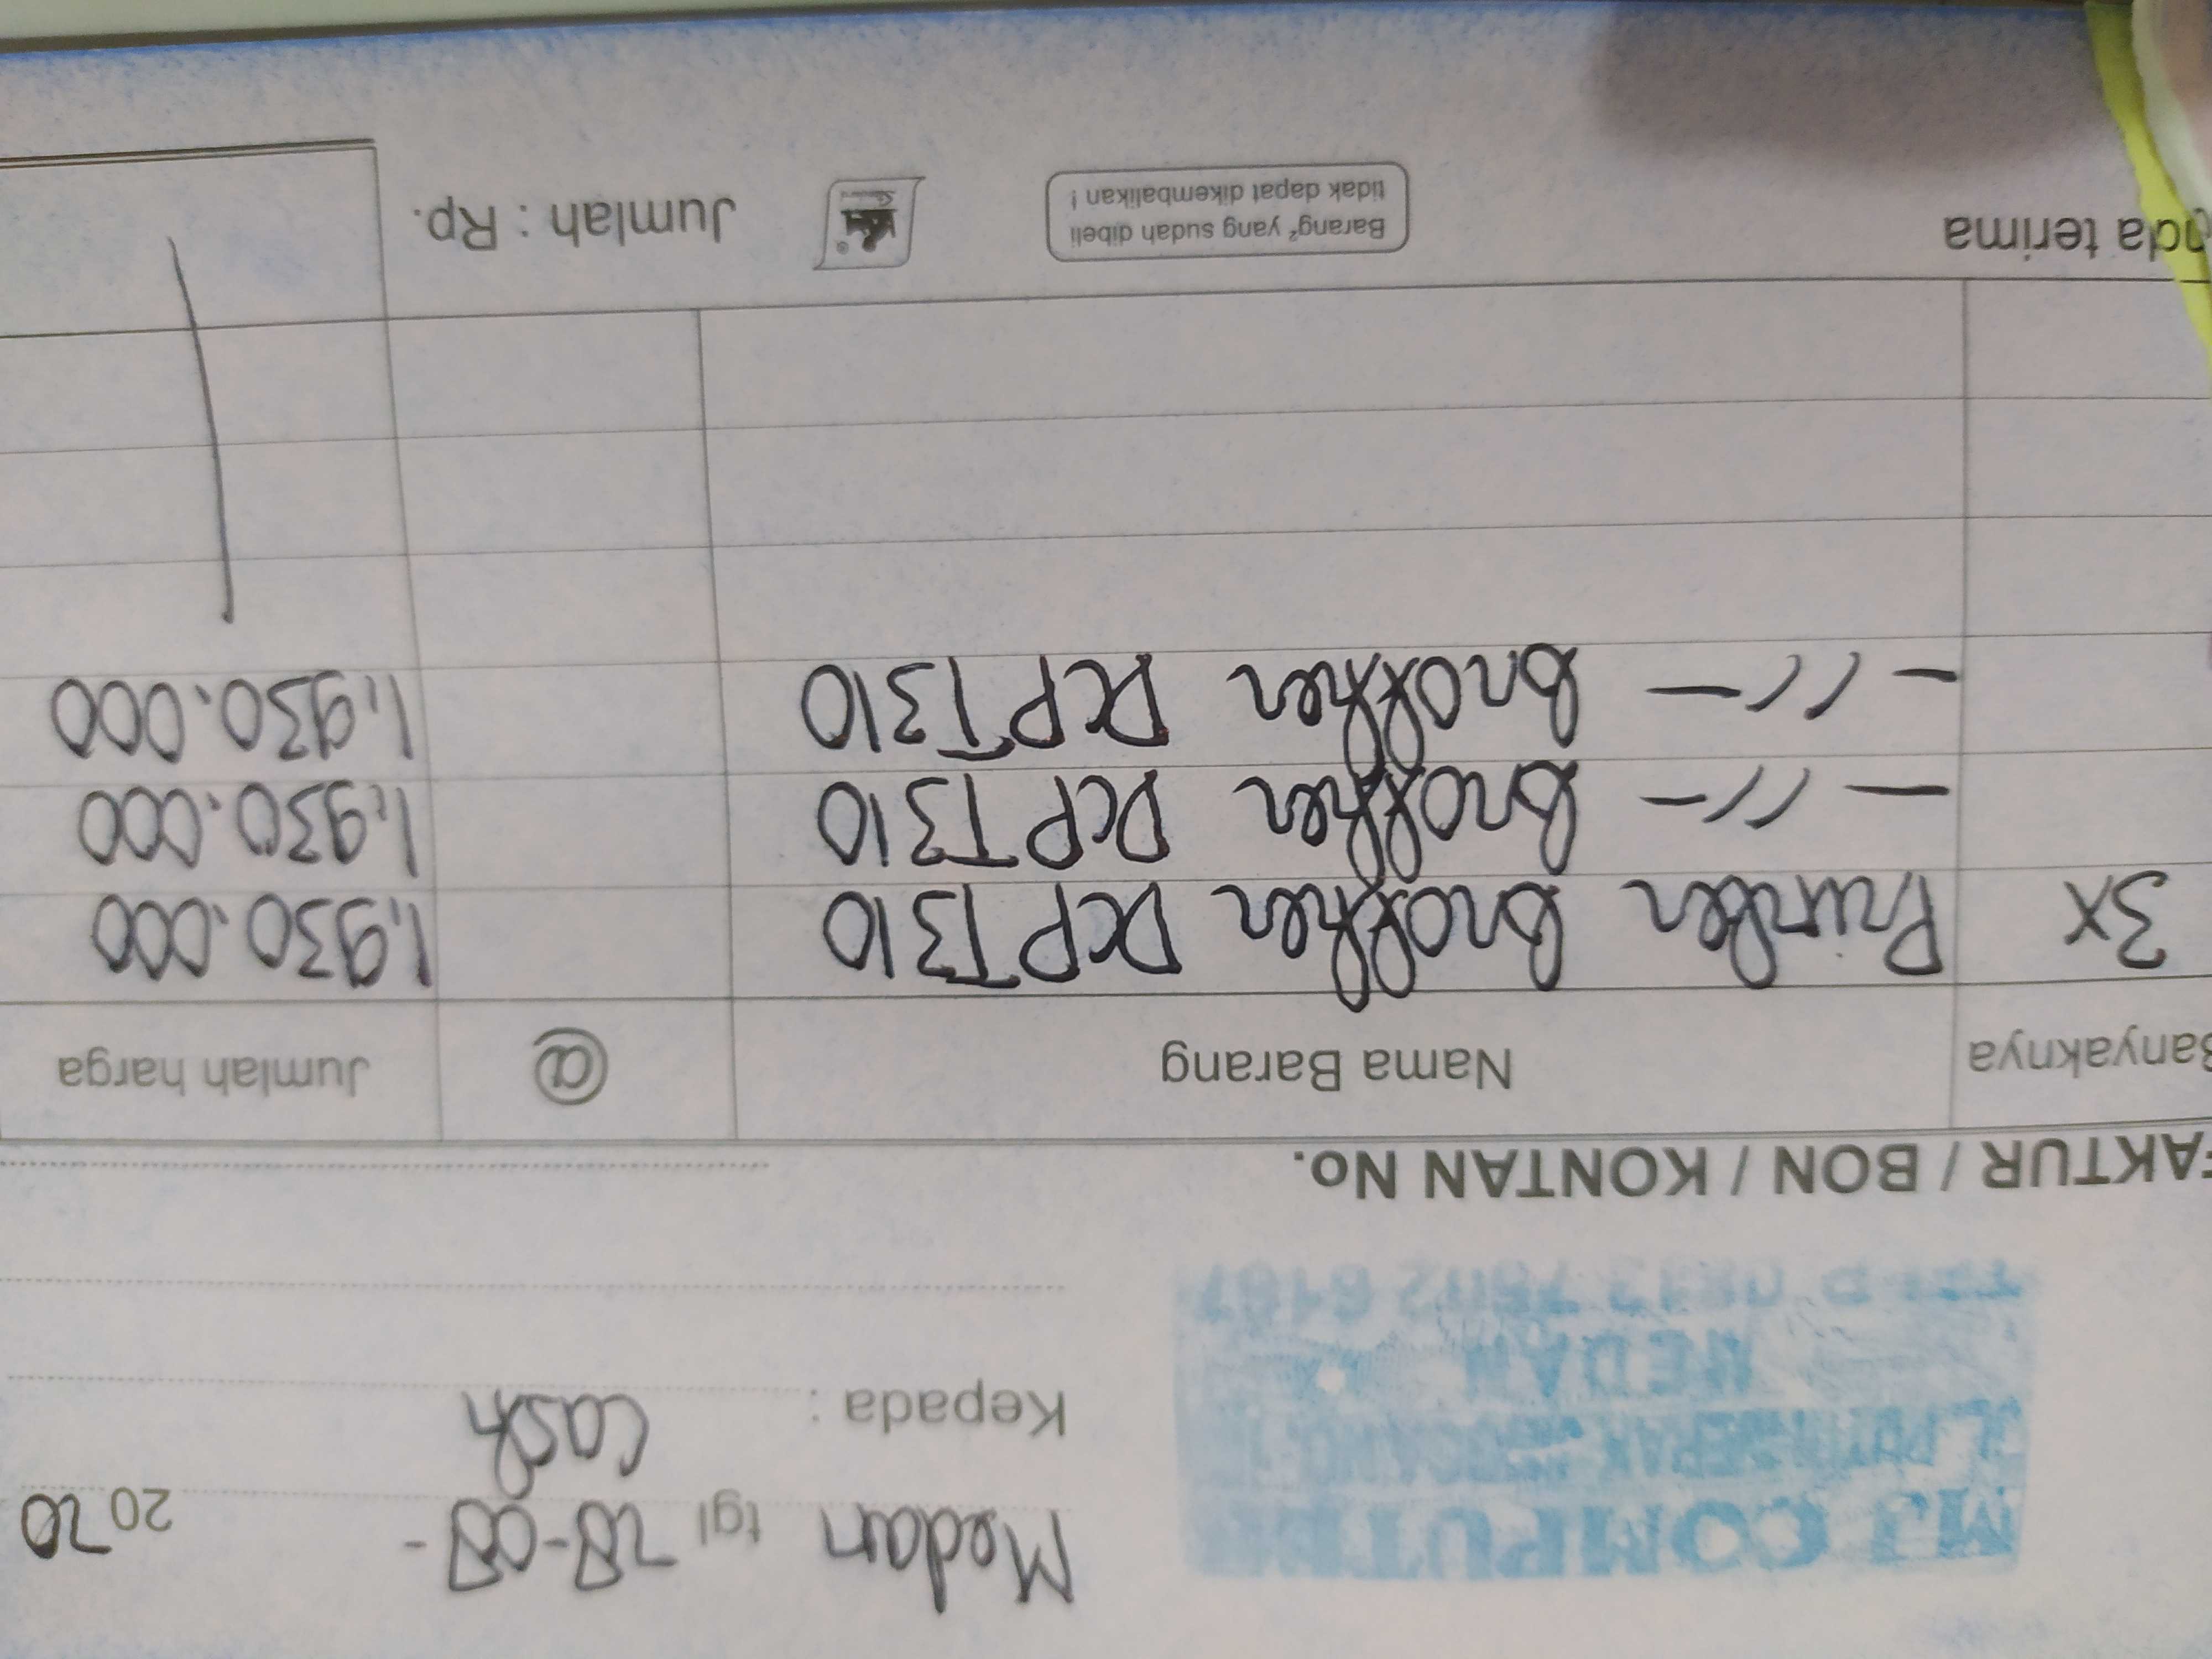 MJ COMPUTE
MEDAN
Medan tgl 28-08- 2020
Kepada : Cash
FAKTUR / BON / KONTAN No.
Banyaknya Nama Barang @ Jumlah harga
3x Printer Brother DCPT310 1,930.000
— 〃 — Brother DCPT310 1,930.000
— 〃 — Brother DCPT310 1,930.000
nda terima
Barang² yang sudah dibeli
tidak dapat dikembalikan !
Jumlah : Rp.